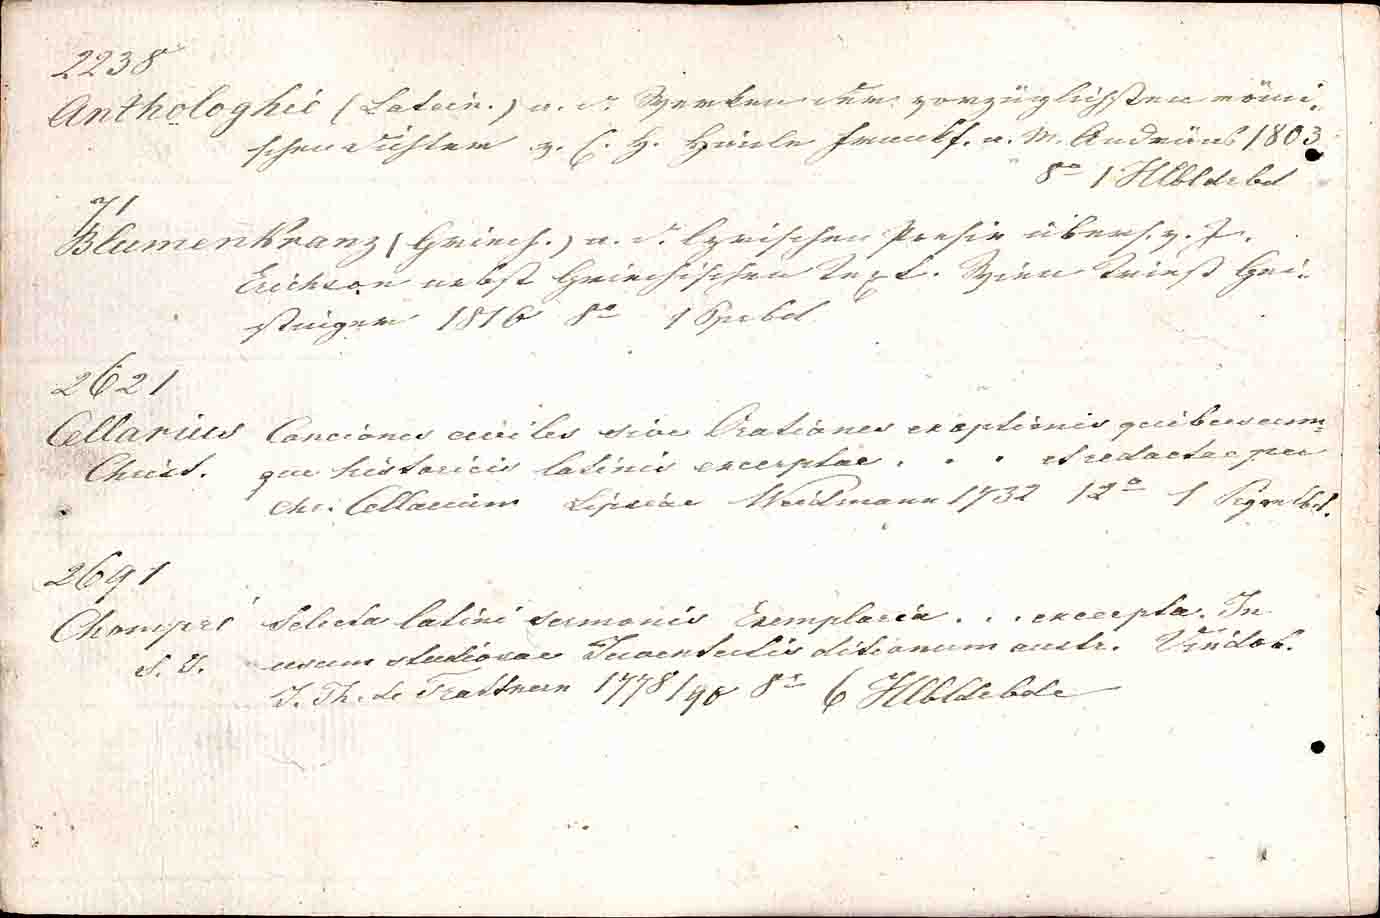 2238
Anthologhie (Latein.) a. d. Werken der vorzüglichsten römi-
schen Dichter v. C. H. Hänle Frankf. a. M. Andreäis 1803
8° 1 Hlbldrbd
71
Blumenkranz (Griech.) a. d. lyrischen Poesie übers. v. J.
Erichson nebst Griechischen Text. Wien Triest Gei-
stinger 1810 8° 1 Ppebd
2621
Cellarius Conciones civiles sive Orationes ex optimis quibuscum=
Christ. que historicis latinis excerptae . . . et redactae per
Chr. Cellarium Lipsiae Weidmann 1732 12° 1
2691
Chompré Selecta latini sermonis Exemplaria . . . excerpta. In
usum studiosae Juventutis ditionum austr. Vindob.
J. Th. de Trattnern 1778/90 8° 6 Hlbldrbde